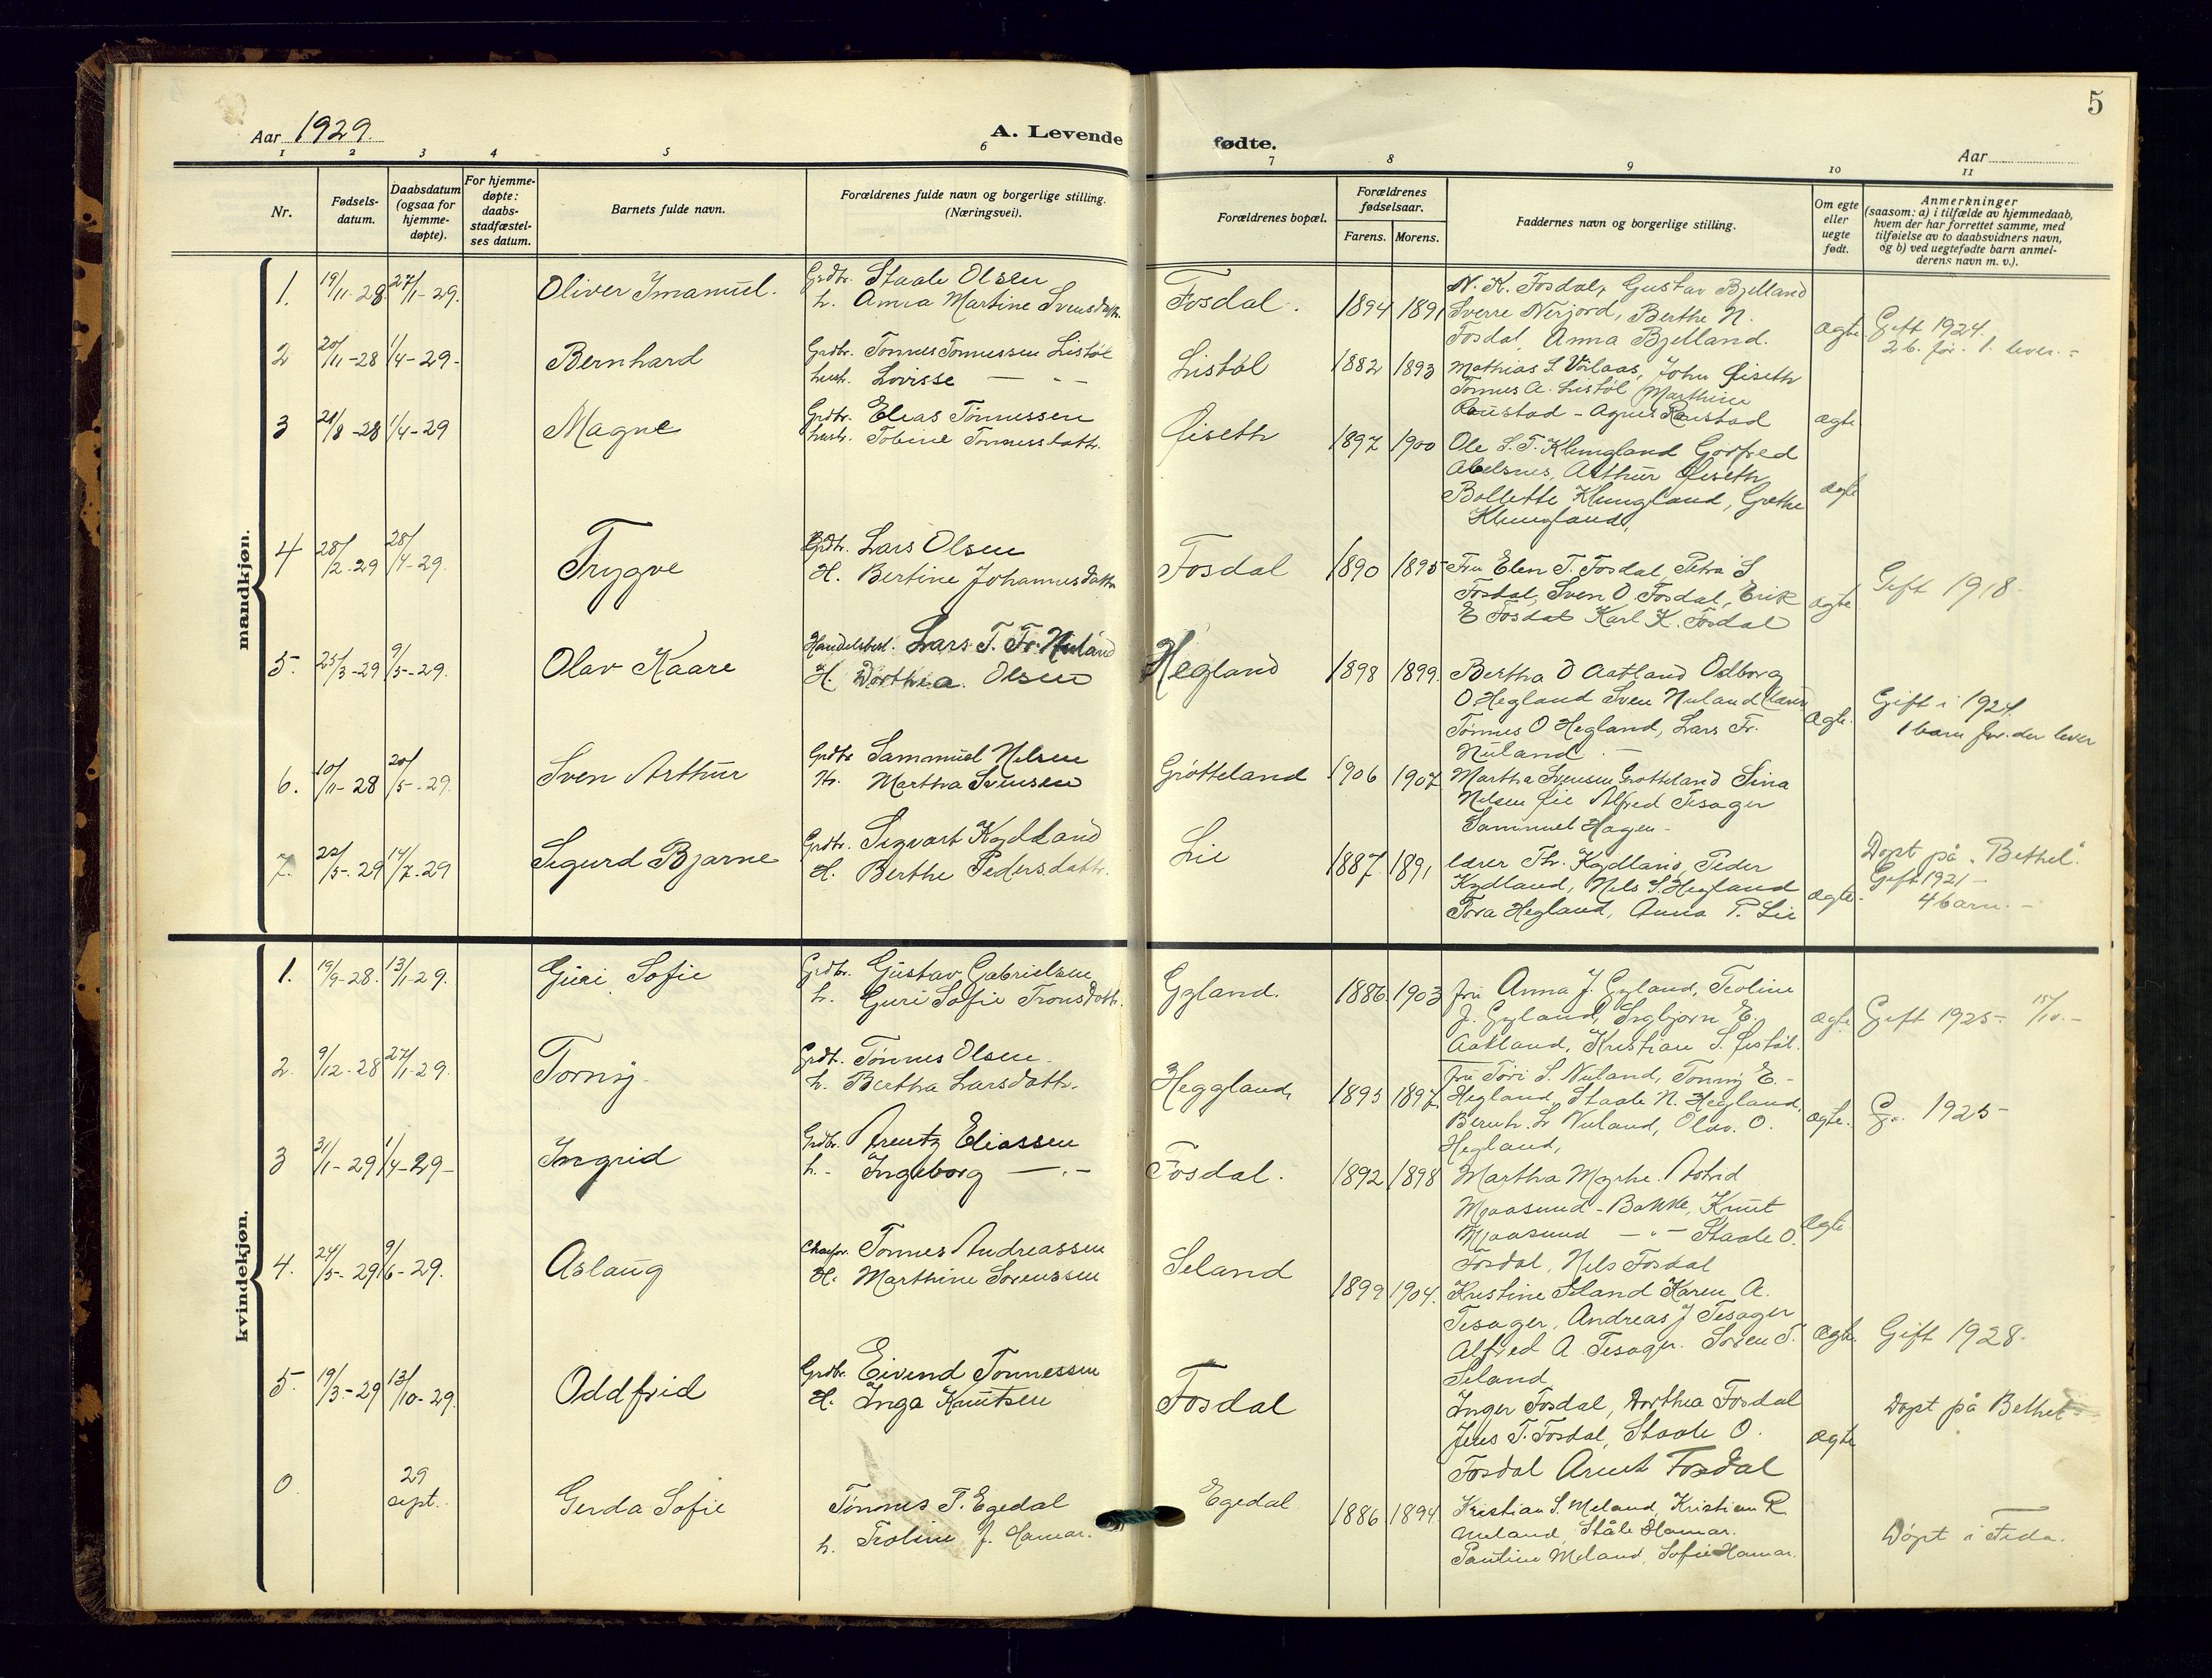 5
Aar 1929.
A. Levende fødte.
Aar
1 2 3 4 5 6 7 8 9 10 11
Nr.
Fødsels-
datum.
Daabsdatum
(ogsaa for
hjemme-
døpte).
For hjemme-
døpte:
daabs-
stadfæstel-
ses datum.
Barnets fulde navn.
Forældrenes fulde navn og borgerlige stilling.
(Næringsvei).
Forældrenes bopæl.
Forældrenes
fødselsaar.
Farens. Morens.
Faddernes navn og borgerlige stilling.
Om egte
eller
uegte
født.
Anmerkninger
(saasom: a) i tilfælde av hjemmedaab,
hvem der har forrettet samme, med
tilføielse av to daabsvidners navn,
og b) ved uegtefødte barn anmel-
derens navn m. v.).
mandkjøn.
1. 19/11-28. 27/1-29. Oliver Imanuel.
Grdbr. Staale Olsen
h. Anna Martine Svensdattr.
Fosdal. 1894 1891
N. K. Fosdal, Gustav Bjelland
Sverre Nerjord, Berthe N.
Fosdal, Anna Bjelland.
ægte Gift 1924.
2 b. før. 1. lever.
2 20/11-28 1/4-29- Bernhard
Grdbr. Tønnes Tønnessen Listøl
hustr. Lovisse — " —
Listøl 1882 1893
Mathias S. John Øiseth
Tønnes A. Listøl Marthine
Raustad - Agnes Raustad
ægte
3 21/8-28 1/4-29 Magne
Grdbr. Elias Tønnessen
hustr. Tobine Tønnessdattr.
Øiseth 1897 1900
Ole S. T. Klungland Gotfred
Abelsnes, Arthur Øiseth
Bollette Klungland, Grethe
Klungland,
ægte
4 28/2-29 28/4-29. Trygve
Grdbr. Lars Olsen
H. Bertine Johannesdattr
Fosdal 1890 1895
Fru Elen T. Fosdal, Petra S
Fosdal, Sven O. Fosdal, Erik
E Fosdal Karl K. Fosdal
ægte Gift 1918-
5. 25/3-29 9/5-29. Olav Kaare
Handelsbest. Lars T. Fr. Nuland
H. Dorthea Olsen
Hegland 1898 1899.
Bertha O Aatland Odborg
O Hegland Sven Nuland
Tønnes O Hegland, Lars Fr.
Nuland —
Ægte. Gift i 1924.
1 barn før. der lever
6. 10/11-28 20/5-29. Sven Arthur
Grdbr Sammuel Nilsen
H. Martha Svensen
Grøtteland 1906 1907
Martha Svensen Grøtteland Sina
Nilsen Lie Alfred Tesager
Sammuel Hagen-
7. 22/5-29 14/7-29 Sigurd Bjarne
Grdbr. Sigvart Kydland
H. Berthe Pedersdattr.
Lie 1887. 1891
lærer Th. Kydland, Peder
Kydland, Nils S. Hegland
Tora Hegland, Anna P. Lie
ægte. Døpt på "Bethel".
Gift 1921-
4 barn. -
kvindekjøn.
1. 19/9-28. 13/1-29. Guri Sofie
Grdbr. Gustav Gabrielsen
h. Guri Sofie Tronsdattr.
Gyland. 1886. 1903
fru Anna J. Gyland, Troline
J. Gyland, Ingbjørn E.
Aatland, Kristian S. Listøl.
ægte Gift 1925- 15/10.-
2. 9/12-28 27/1-29. Torny
Grdbr. Tønnes Olsen.
h. Bertha Larsdattr.
Heggland, 1895 1897.
fru Tori S. Nuland, Tonny E.-
Hegland, Staale N. Hegland,
Bernh. L Nuland, Olav. O.
Hegland,
ægte. G. 1925-
3 31/1-29 1/4-29- Ingrid
Grdbr. Arentz Eliassen
h.- Ingeborg —.—
Fosdal. 1892 1898
Martha Myrhe. Astrid
Mjaasund-Bakke, Knut
Mjaasund — " — Staale O.
Fosdal, Nils Fosdal
Ægte
4. 24/5-29 9/6-29. Aslaug
Chaufør. Tønnes Andreassen
H. Marthine Sørenssen
Seland 1899 1904.
Kristine Seland Karen A.
Tesager, Andreas J Tesager
Alfred A. Tesager. Søren T.
Seland
Ægte. Gift 1928.
5. 19/3-29 13/10-29. Oddfrid
Grdbr. Eivend Tønnessen
H. Inga Knutsen
Fosdal
Inger Fosdal, Dorthea Fosdal
Jens T. Fosdal, Staale O.
Fosdal Arent Fosdal
Ægte Døpt på Bethel
0. 29 sept. Gerda Sofie
Tønnes T. Egedal
h. Troline J. Hamar.
Egedal 1886 1894
Kristian S. Meland, Kristian R
Meland, Ståle Hamar.
Pauline Meland, Sofie Hamar.
Døpt i Feda.